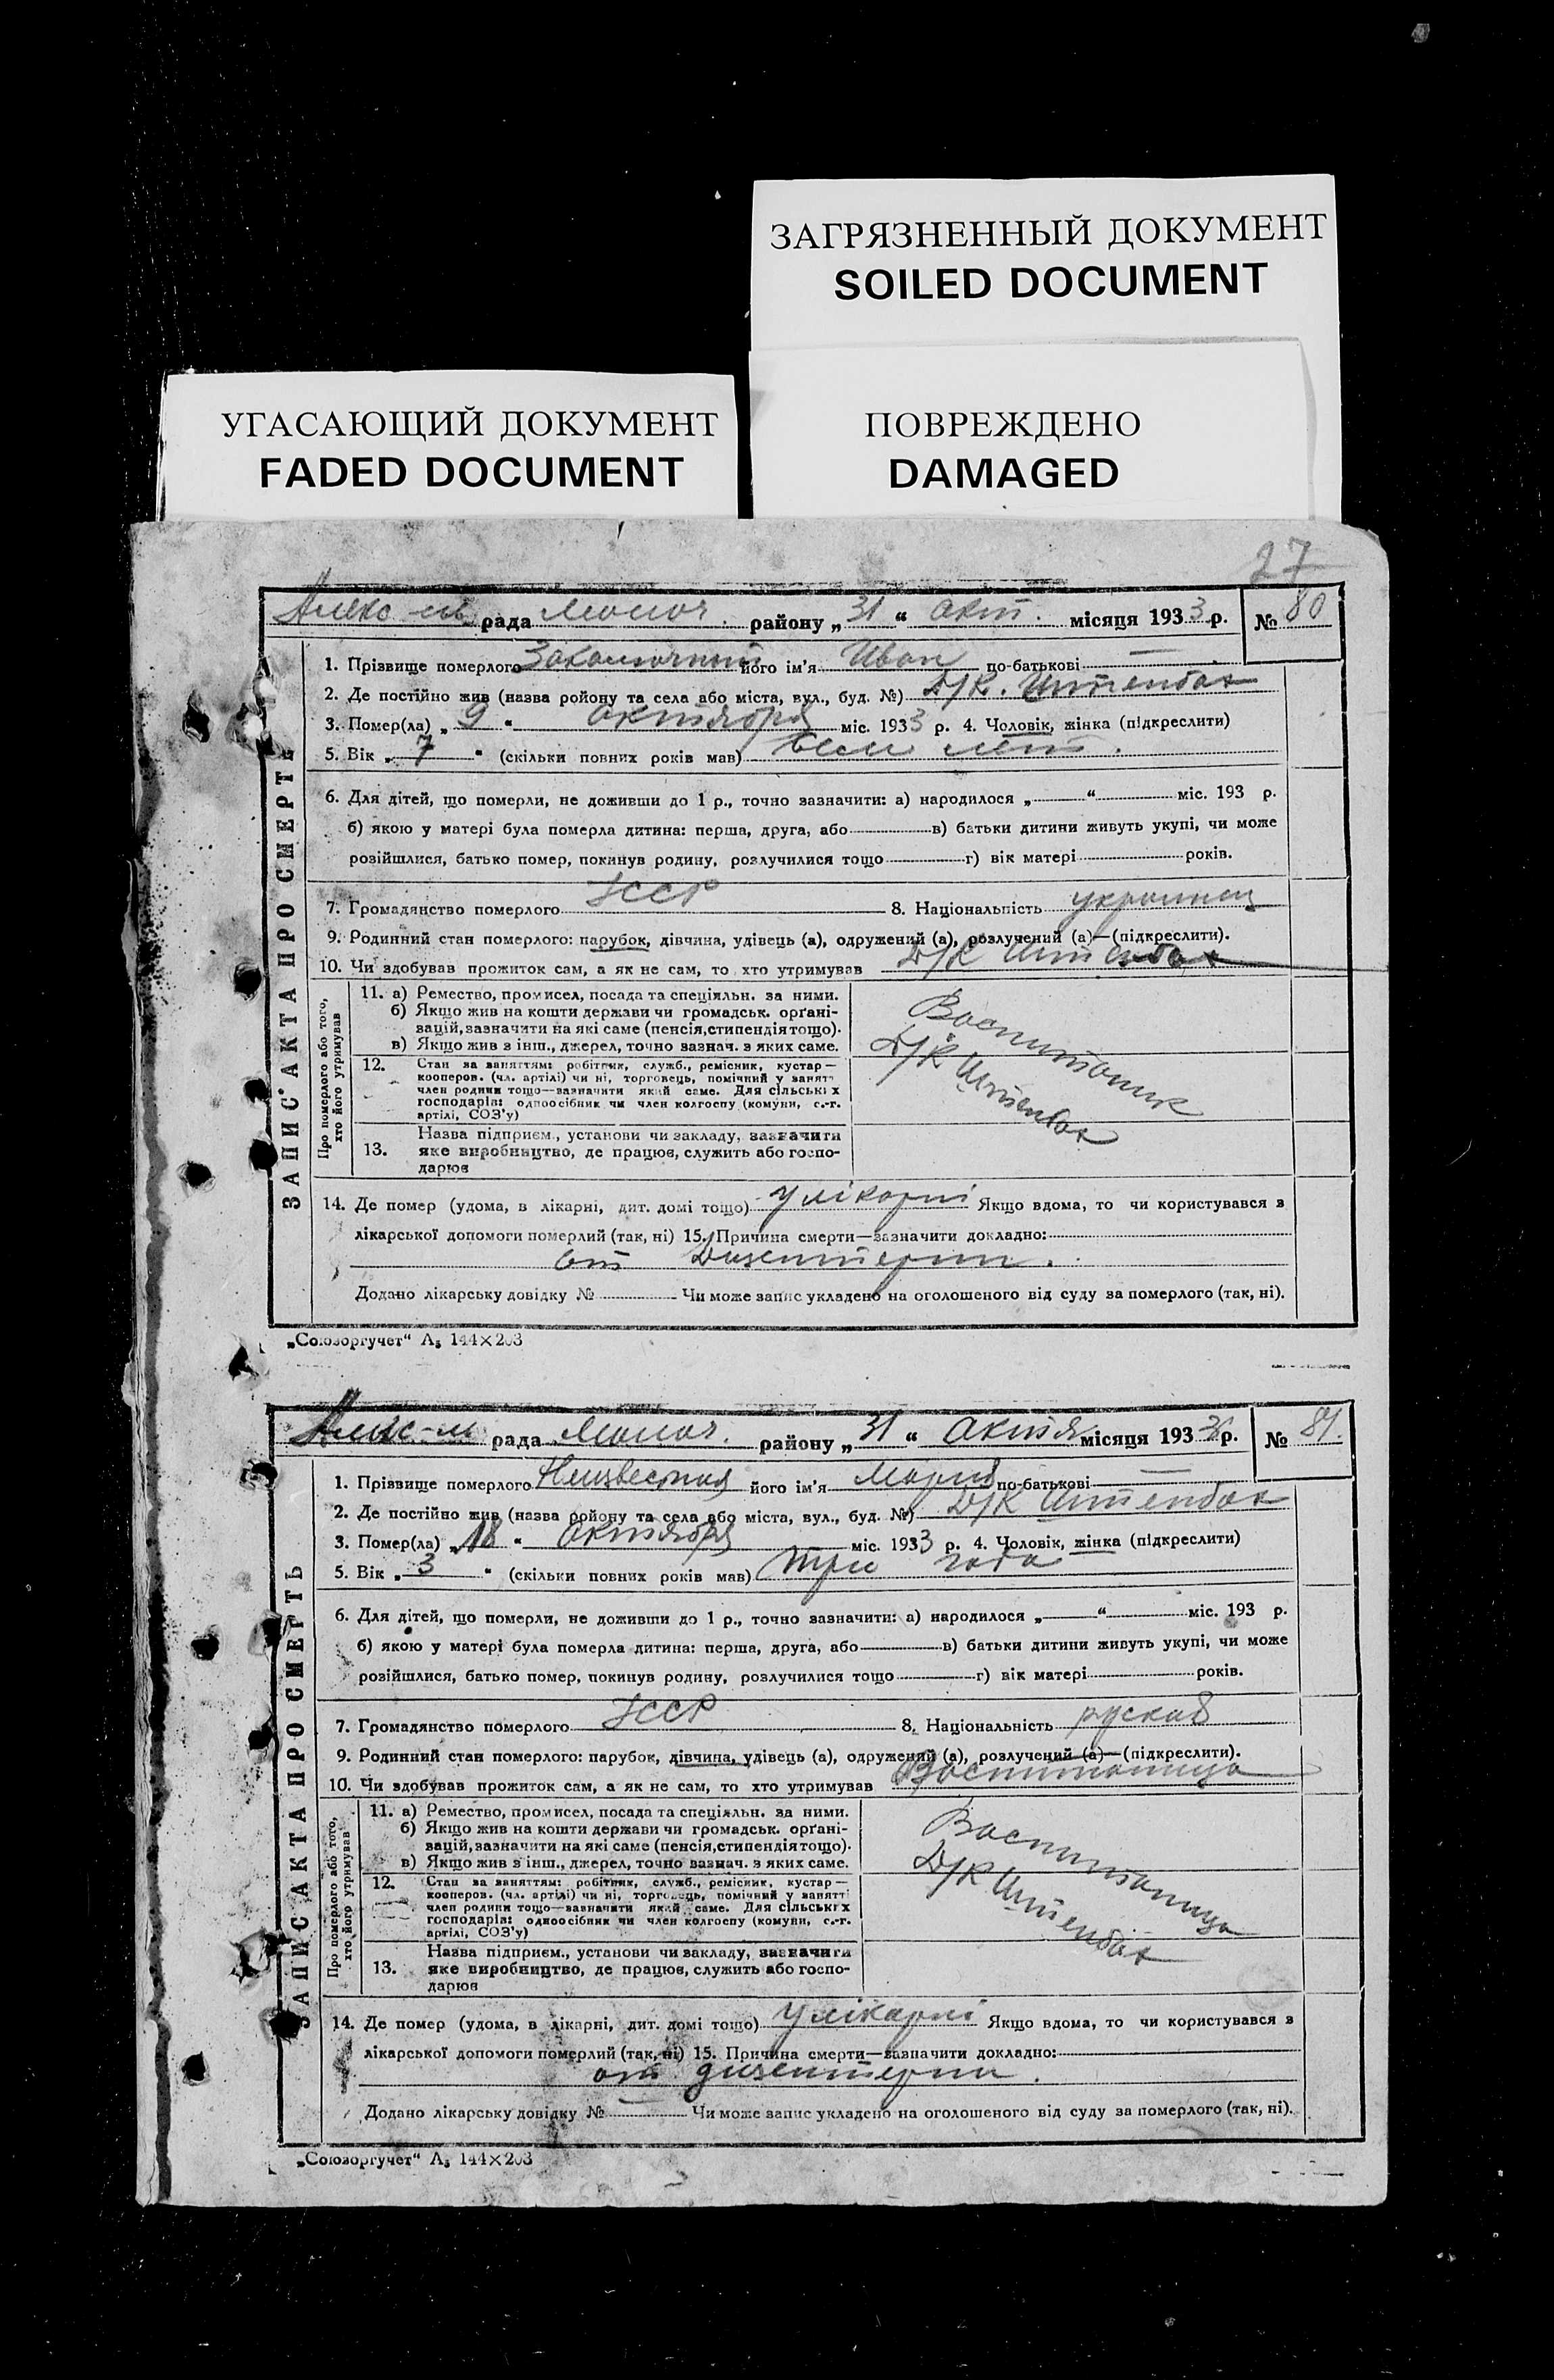 ЗАГРЯЗНЕННЫЙ ДОКУМЕНТ
SOILED DOCUMENT
УГАСАЮЩИЙ ДОКУМЕНТ
FADED DOCUMENT
ПОВРЕЖДЕНО
DAMAGED
27
рада Молоч. району „31“ Окт. місяця 1933 р. № 80
ЗАПИС АКТА ПРО СМЕРТЬ
1. Прізвище померлого його ім'я Иван по-батькові —
2. Де постійно жив (назва ройону та села або міста, вул., буд. №) Д/К. Штенбах
3. Помер(ла) „9“ октября міс. 1933 р. 4. Чоловік, жінка (підкреслити)
5. Вік „7“ (скільки повних років мав) лет.
6. Для дітей, що померли, не доживши до 1 р., точно зазначити: а) народилося „ “ міс. 193 р.
б) якою у матері була померла дитина: перша, друга, або в) батьки дитини живуть укупі, чи може
розійшлися, батько помер, покинув родину, розлучилися тощо г) вік матері років.
7. Громадянство померлого УССР 8. Національність украинец
9. Родинний стан померлого: парубок, дівчина, удівець (а), одружений (а), розлучений (а)—(підкреслити).
10. Чи здобував прожиток сам, а як не сам, то хто утримував Д/К Штенбах
Про померлого або того, хто його утримував
11. а) Ремество, промисел, посада та спеціяльн. за ними.
б) Якщо жив на кошти держави чи громадськ. орґані-
зацій, зазначити на які саме (пенсія, стипендія тощо).
в) Якщо жив з інш., джерел, точно зазнач. з яких саме.
Воспитаник
Д/К Штенбах
12. Стан за заняттям: робітник, служб., ремісник, кустар—
кооперов. (чл. артілі) чи ні, торговець, помічний у занятт
член родини тощо—зазначити який саме. Для сільських
господарів: одноосібник чи член колгоспу (комуни, с.-г.
артілі, СОЗ'у)
13. Назва підприєм., установи чи закладу, зазначити
яке виробництво, де працює, служить або госпо-
дарює
14. Де помер (удома, в лікарні, дит. домі тощо) у лікарні Якщо вдома, то чи користувався з
лікарської допомоги померлий (так, ні) 15. Причина смерти—зазначити докладно:
от Дизентерии.
Додано лікарську довідку № Чи може запис укладено на оголошеного від суду за померлого (так, ні).
„Союзоргучет“ А₅ 144×203
рада Молоч. району „31“ Октя місяця 1933 р. № 81.
ЗАПИС АКТА ПРО СМЕРТЬ
1. Прізвище померлого Неизвестная його ім'я Мария по-батькові —
2. Де постійно жив (назва ройону та села або міста, вул., буд. №) Д/К Штенбах
3. Помер(ла) „18“ октября міс. 1933 р. 4. Чоловік, жінка (підкреслити)
5. Вік „3“ (скільки повних років мав) три года
6. Для дітей, що померли, не доживши до 1 р., точно зазначити: а) народилося „ “ міс. 193 р.
б) якою у матері була померла дитина: перша, друга, або в) батьки дитини живуть укупі, чи може
розійшлися, батько помер, покинув родину, розлучилися тощо г) вік матері років.
7. Громадянство померлого УССР 8. Національність руская
9. Родинний стан померлого: парубок, дівчина, удівець (а), одружений (а), розлучений (а)—(підкреслити).
10. Чи здобував прожиток сам, а як не сам, то хто утримував Воспитаница
Про померлого або того, хто його утримував
11. а) Ремество, промисел, посада та спеціяльн. за ними.
б) Якщо жив на кошти держави чи громадськ. орґані-
зацій, зазначити на які саме (пенсія, стипендія тощо).
в) Якщо жив з інш., джерел, точно зазнач. з яких саме.
Воспитаница
Д/К Штенбах
12. Стан за заняттям: робітник, служб., ремісник, кустар—
кооперов. (чл. артілі) чи ні, торговець, помічний у занятті
член родини тощо—зазначити який саме. Для сільських
господарів: одноосібник чи член колгоспу (комуни, с.-г.
артілі, СОЗ'у)
13. Назва підприєм., установи чи закладу, зазначити
яке виробництво, де працює, служить або госпо-
дарює
14. Де помер (удома, в лікарні, дит. домі тощо) у лікарні Якщо вдома, то чи користувався з
лікарської допомоги померлий (так, ні) 15. Причина смерти—зазначити докладно:
от дизентерии.
Додано лікарську довідку № — Чи може запис укладено на оголошеного від суду за померлого (так, ні).
„Союзоргучет“ А₅ 144×203